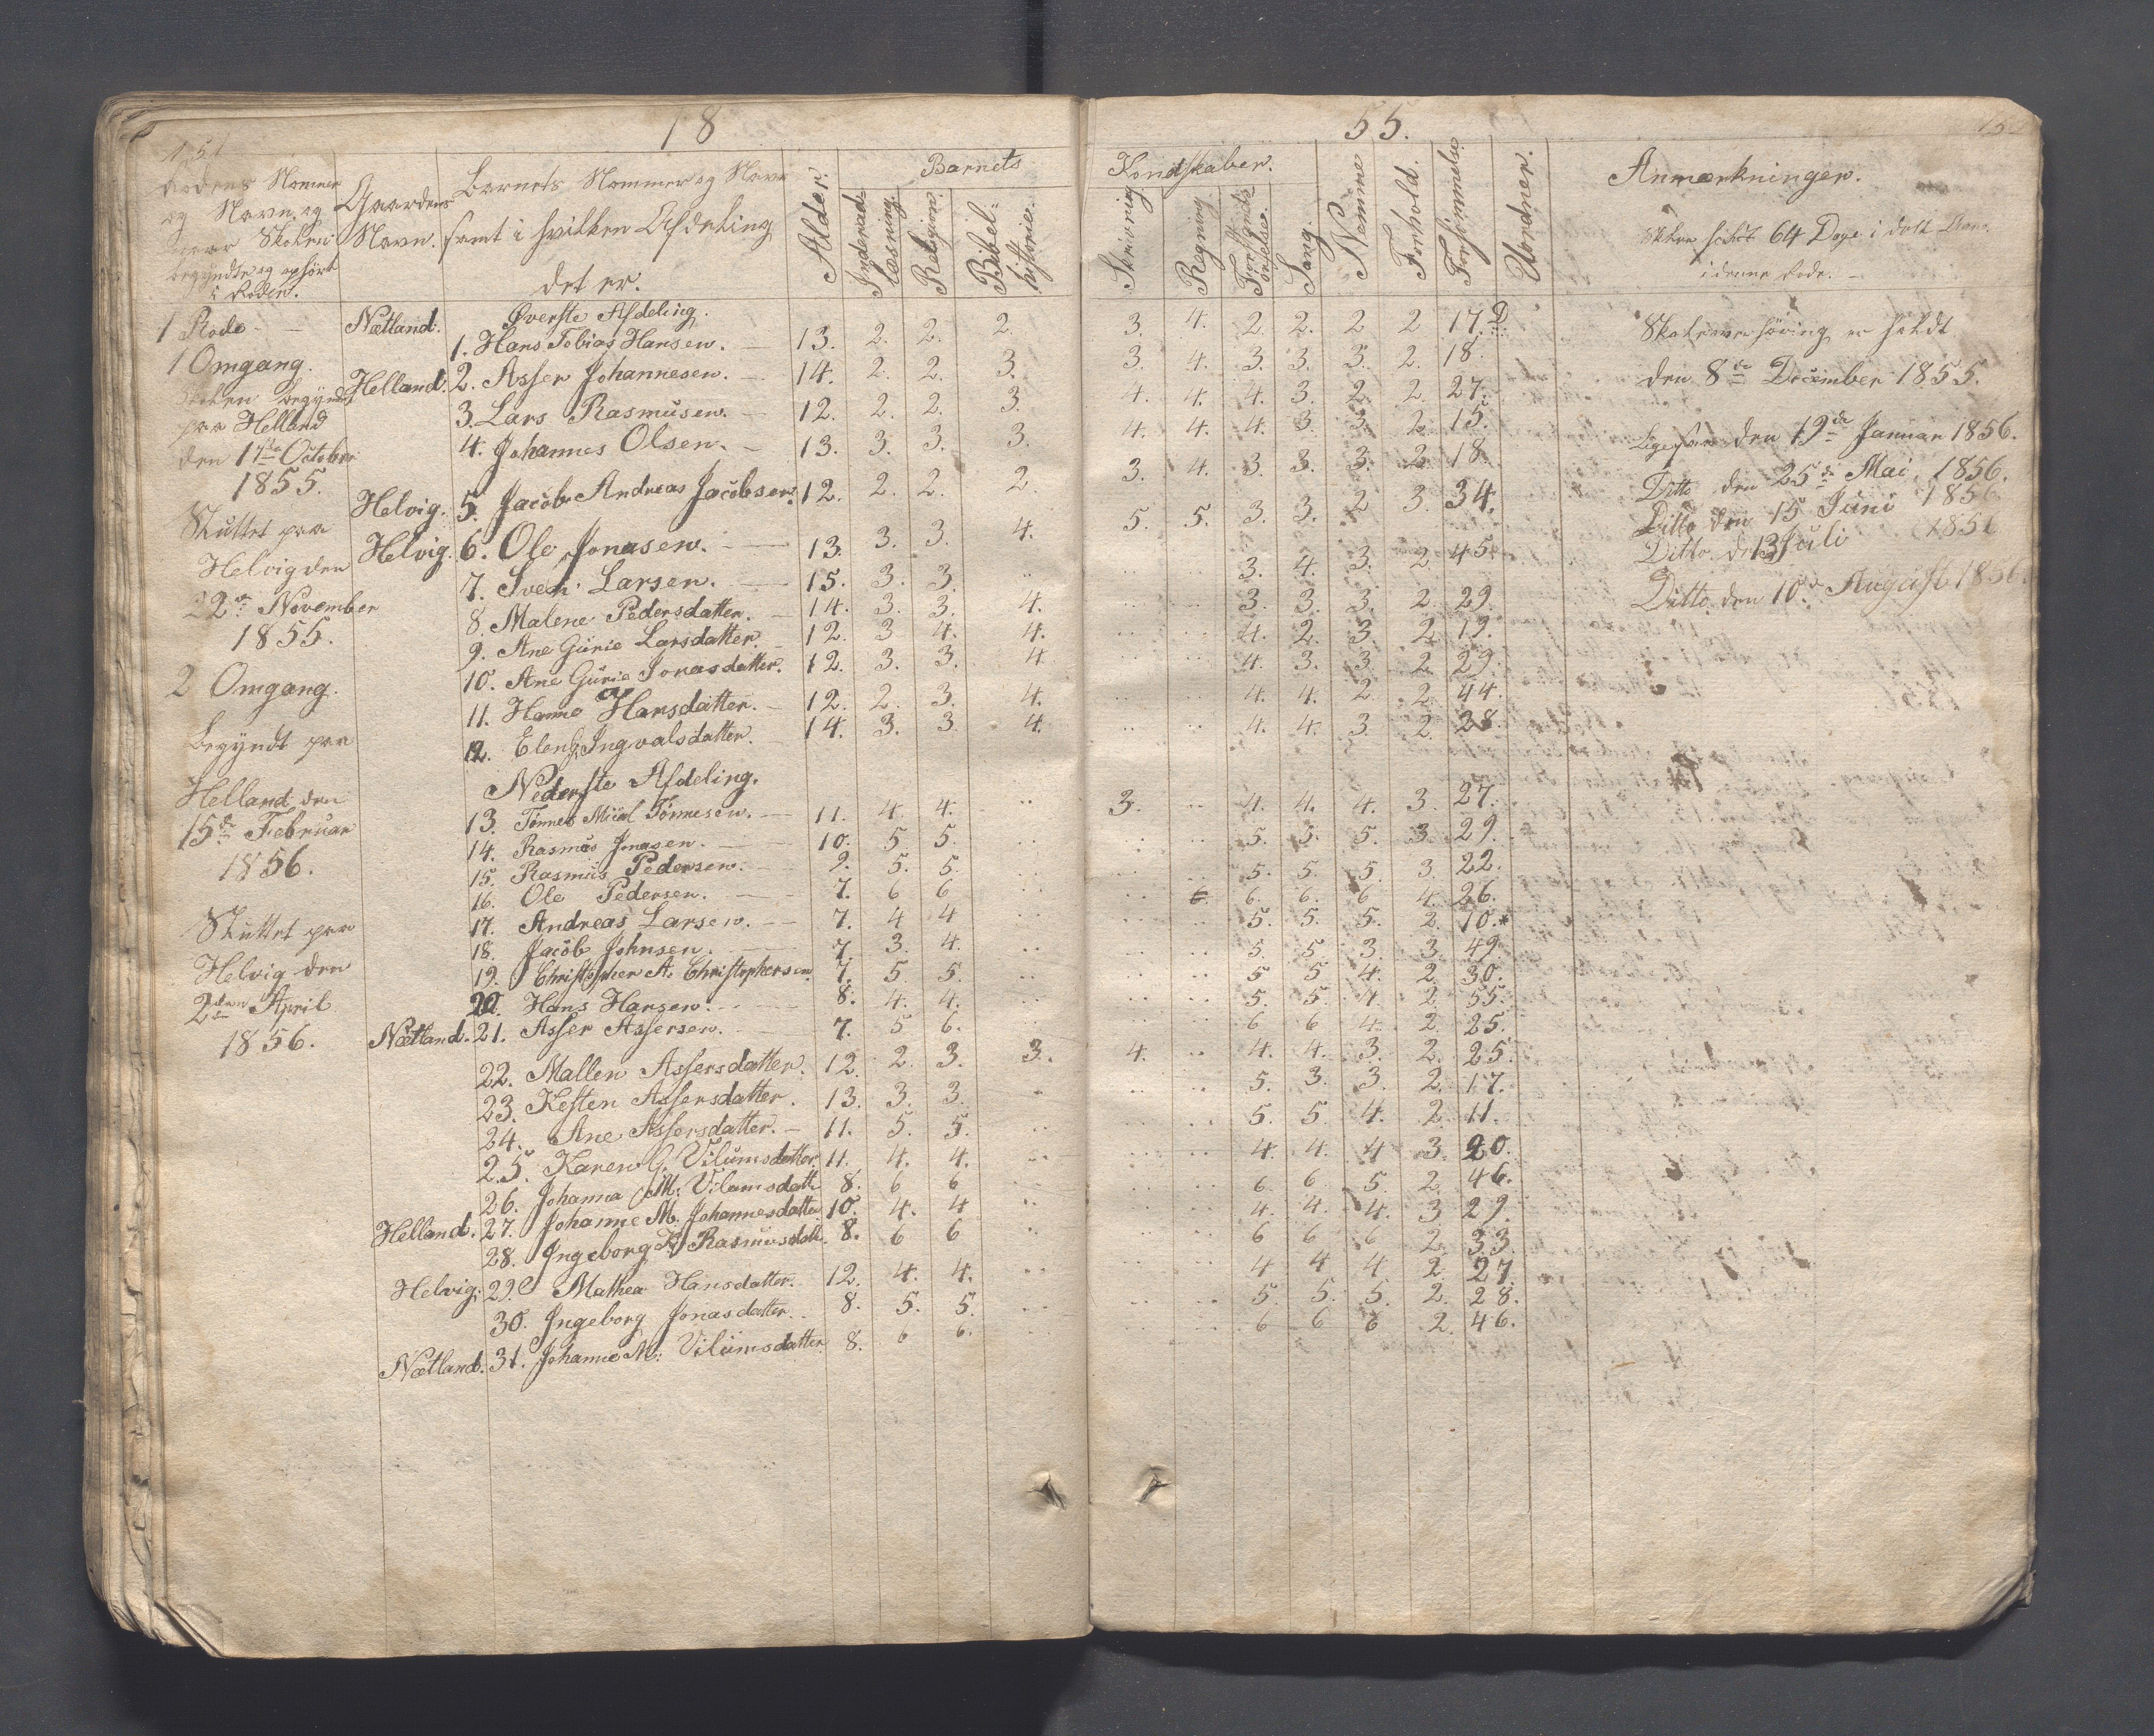 151
18
55.
Rodens Nommer og Navn, og naar Skolen begyndte og ophørt i Roden.
Gaardens Navn.
Barnets Nommer og Navn samt i hvilken Afdeling det er.
Alder.
Barnets Kondskaber.
Indenad- læsning. Religion. Bibel- historie. Skrivning Regning Sang. Nemme Forhold. Forsømmelse
Anmærkninger.
Skolen holdt 64 Dage i dette Aar
i denne Rode. –
1 Rode
1 Omgang.
Skolen begyndt
paa Helland
den 17de October
1855.
Sluttet paa
Helvig den
22de November
1855.
2 Omgang.
Begyndt paa
Helland den
15de Februar
1856.
Sluttet paa
Helvig den
2den April
1856.
Øverste Afdeling.
Nætland. 1. Hans Tobias Hansen. 13. 2. 2. 2. 3. 4. 2. 2. 2 2 17. D
Helland. 2. Asser Johannesen. 14. 2. 2. 3. 3. 4. 3. 3. 3. 2. 18.
3. Lars Rasmusen. 12. 2. 2. 3. 4. 4. 4. 3. 2. 2. 27.
4. Johannes Olsen. 13. 3. 3. 3. 4. 4. 4. 3. 3. 2. 15.
Helvig. 5. Jacob Andreas Jacobsen. 12. 2. 2. 2 3. 4. 3. 3. 3. 2. 18.
Helvig. 6. Ole Jonasen. 13. 3. 3. 4. 5. 5. 3. 3. 2 3. 34.
7. Svend Larsen. 15. 3. 3. .. .. .. 3. 4. 3. 2. 45.
8. Malene Pedersdatter. 14. 3. 3. 4. .. .. 3. 3. 3. 2. 29.
9. Ane Gurie Larsdatter. 12. 3 4. 4. .. .. 4. 2. 3. 2. 19.
10. Ane Gurie Jonasdatter. 12. 3. 3. 4 .. .. 4. 3. 3. 2. 29.
11. Hanne Hansdatter. 12. 2. 3. 4. .. .. 4. 4. 2. 2. 44.
12. Elen G. Ingvalsdatter. 14. 3. 3. 4. .. .. 4. 4. 3. 2. 28.
Nederste Afdeling.
13. Tønnes Mical Tønnesen. 11. 4. 4. .. 3. .. 4. 4. 4. 3. 27.
14. Rasmus Jonasen. 10. 5 5. .. .. .. 5. 5. 5. 3. 29.
15. Rasmus Pedersen. 9. 5. 5. .. .. .. 5. 5. 5. 3. 22.
16. Ole Pedersen. 7. 6 6 .. .. 6. 6. 6. 6 4. 26.
17. Andreas Larsen. 7. 4 4 .. .. .. 5. 5. 5. 2. 10.*
18. Jacob Johnsen. 7. 3. 4. .. .. .. 5. 5 3. 3. 49.
19. Christopher A. Christophersen 7. 5 5. .. .. .. 5 5 4. 2. 30.
20. Hans Hansen. 8. 4. 4. .. .. .. 5. 5. 4. 2. 55.
Nætland. 21. Asser Assersen. 7. 5 6. .. .. .. 6 6 4. 2. 25.
22. Mallen Assersdatter. 12. 2. 3. 3. 4. .. 4. 4. 3. 2. 25.
23. Kesten Assersdatter. 13. 3. 3. .. .. .. 5. 3. 3. 2. 17.
24. Ane Assersdatter. 11. 5. 5. .. .. .. 5. 5 4. 2. 11.
25. Karen G. Vilumsdatter. 11. 4. 4. .. .. .. 4. 4. 4 3. 20.
26. Johanna M. Vilumsdatt 8. 6 6 .. .. .. 6. 6. 5. 2. 46.
Helland. 27. Johanne M. Johannesdatter 10. 4. 4 .. .. .. 4. 4. 4. 3 29.
28. Ingeborg K. Rasmusdatt. 8. 6 6 .. .. .. 6 6 6 2. 33.
Helvig. 29. Mathea Hansdatter. 12. 4. 4. .. .. .. 4 4 4 2. 27.
30. Ingeborg Jonasdatter. 8. 5. 5. .. .. .. 5. 5. 5. 2. 28.
Nætland. 31. Johanne M. Vilumsdatter. 8. 6 6. .. .. .. 6 6 6 2. 46.
Skoleoverhøring er holdt
den 8de December 1855.
Ligesaa den 19de Januar 1856.
Ditto den 25de Mai 1856.
Ditto den 15 Juni 1856
Ditto d. 13 Juli 1856
Ditto den 10de August 1856.